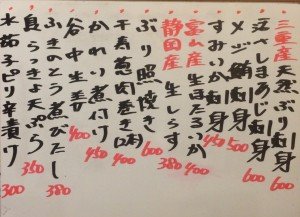 三重産 天然ぶり刺身 600
しまあじ刺身 600
メジ鮪刺身 500
すみいか刺身 450
富山産 生ほたるいか 400
静岡産 生しらす 380
ぶり照焼き 600
千寿葱肉巻き 400
かれい煮付け 450
谷中生姜 400
ふきのとう煮びたし 380
島らっきょ天ぷら 350
水茄子ピリ辛漬け 300